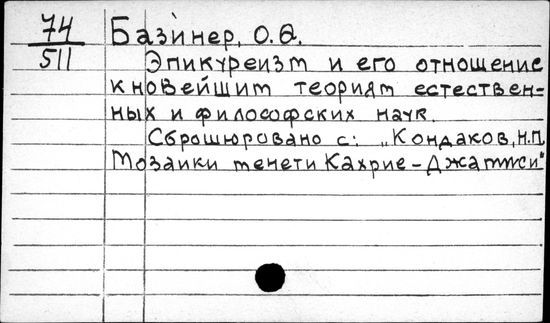 74
511
Базинер, О.Ѳ.
Эпикуреизм и его отношение
к новейшим теориям естествен-
ных и философских наук.
Сброшюровано с: „Кондаков, Н.П.
Мозаики мечети Кахрие-Джамиси"